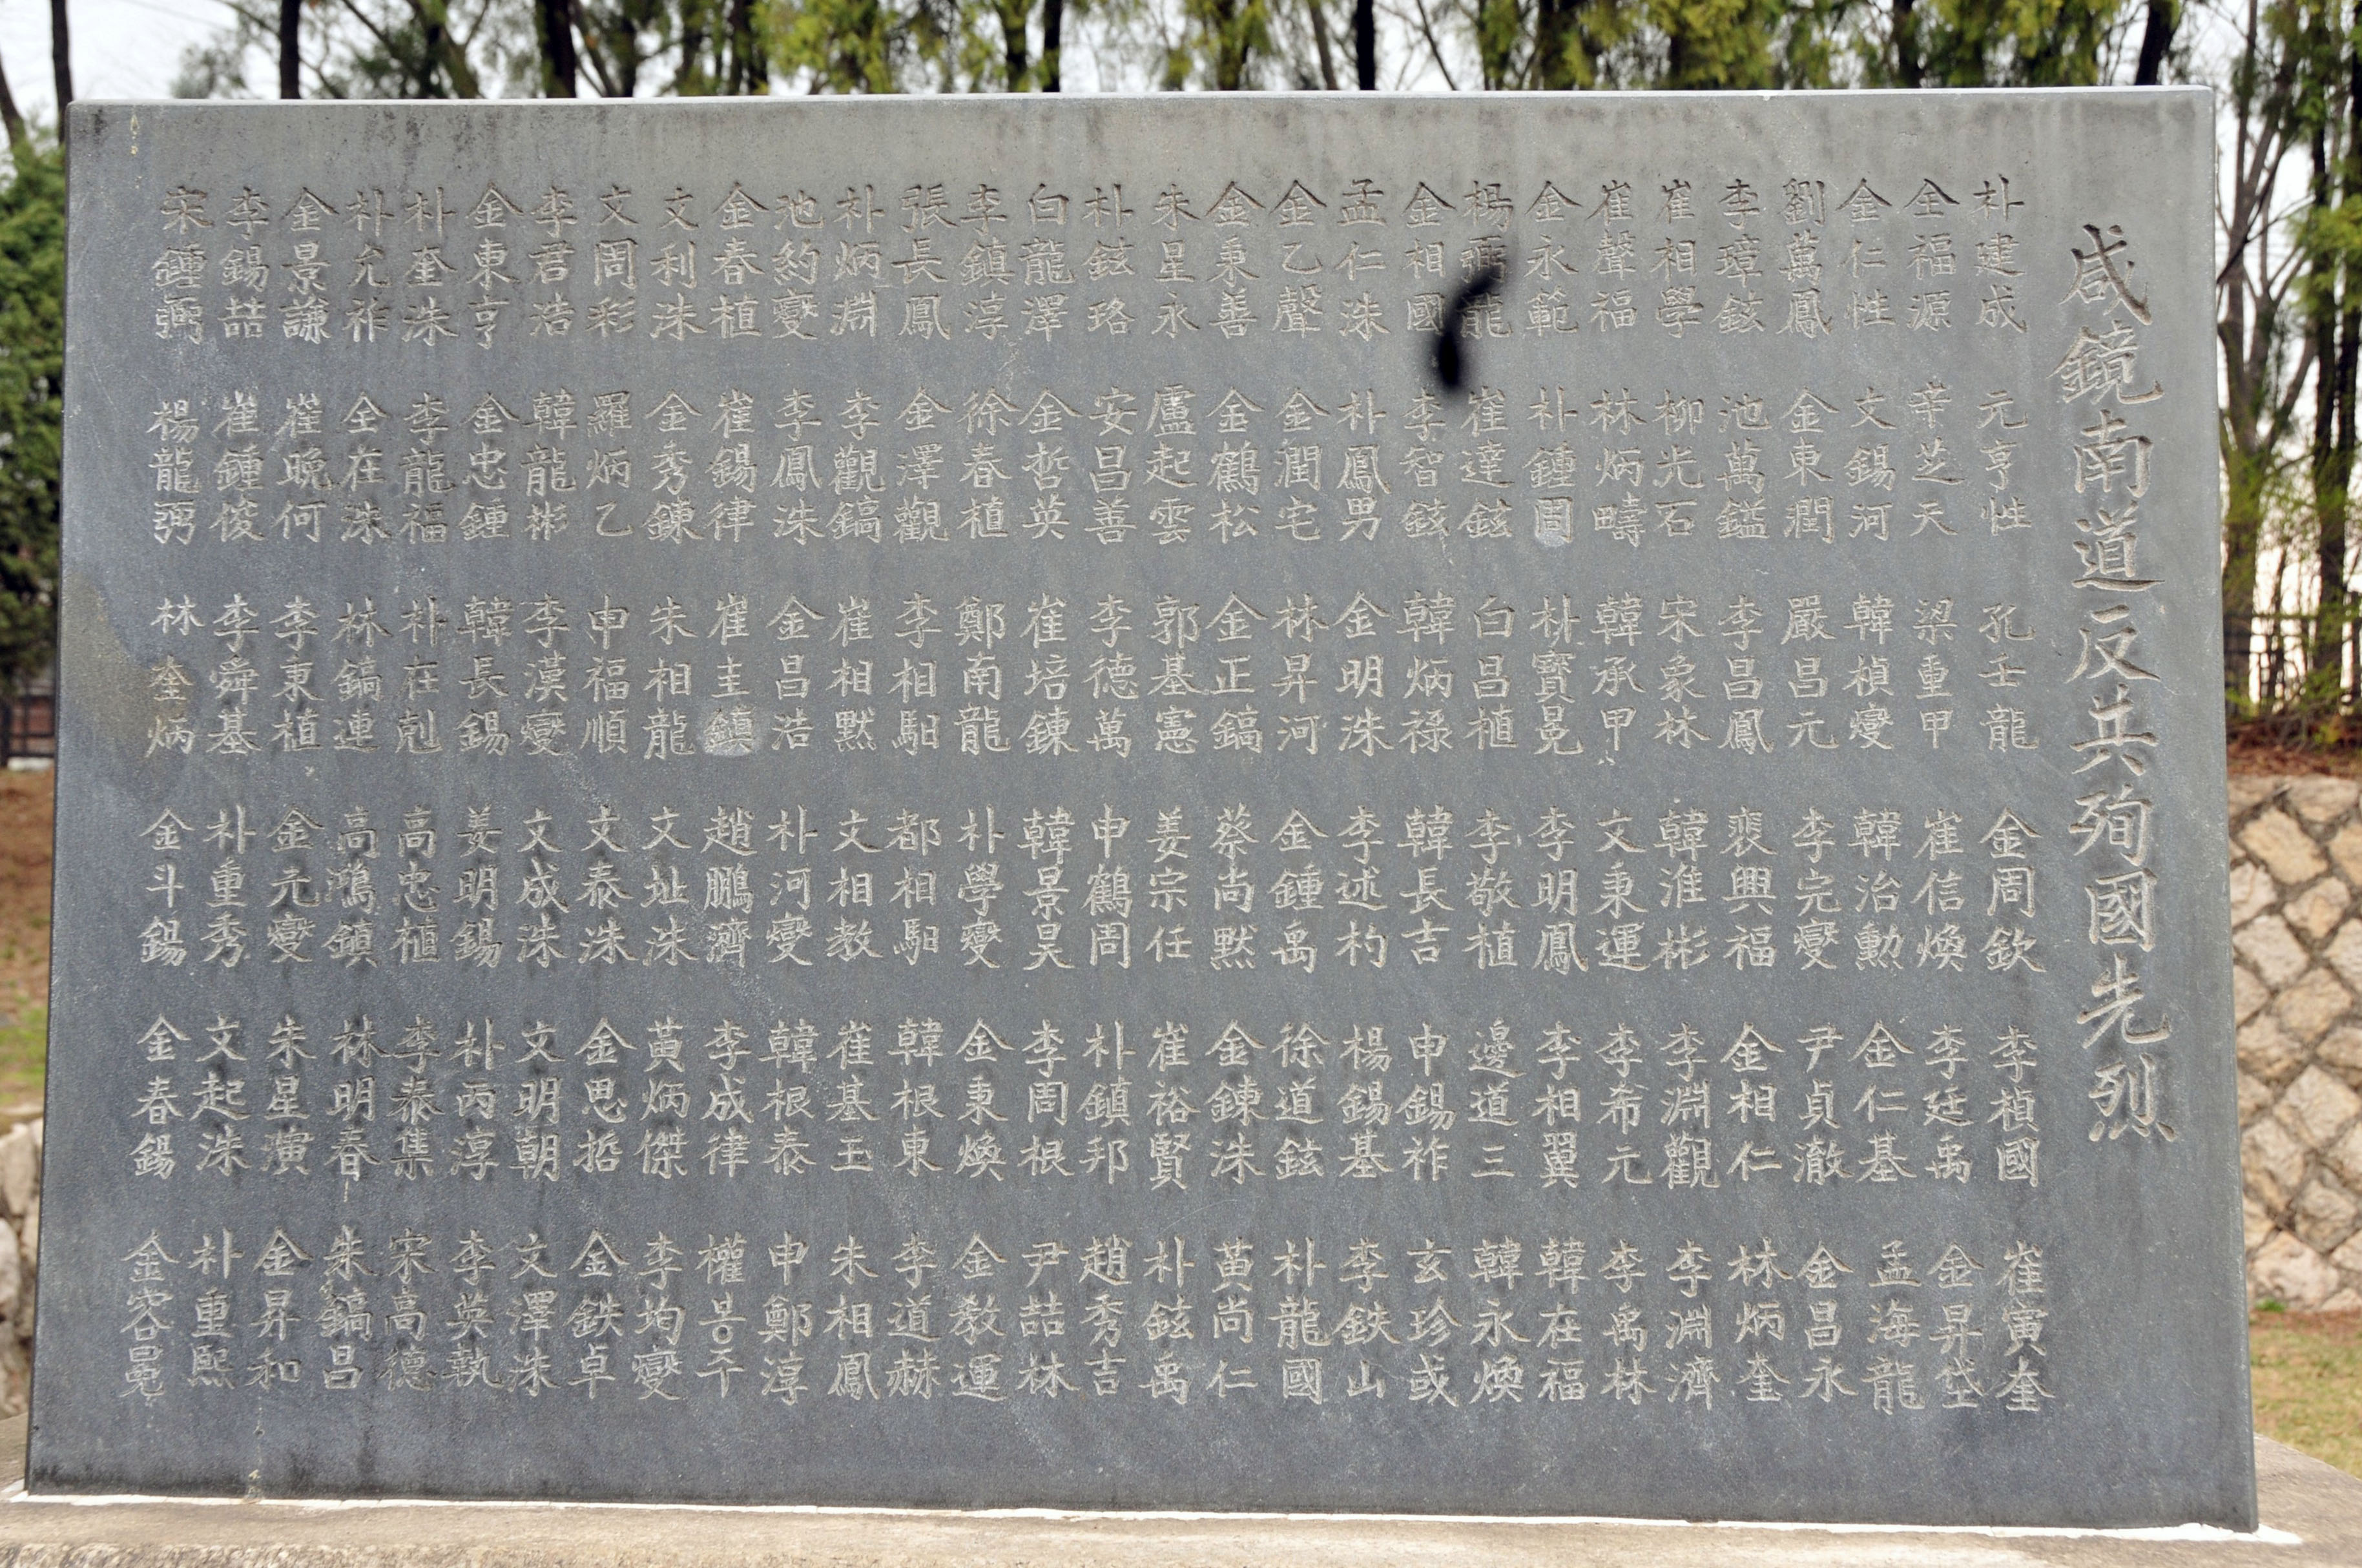 咸鏡南道反共殉國先烈
朴建成 元亨性 孔壬龍 金周欽 李楨國 崔寅奎
全福源 辛芝天 梁重甲 崔信煥 李廷禹 金昇岱
金仁性 文錫河 韓楨燮 韓治勳 金仁基 孟海龍
劉萬鳳 金東潤 嚴昌元 李完燮 尹貞澈 金昌永
李璋鉉 池萬鎰 李昌鳳 裴興福 金相仁 林炳奎
崔相學 柳光石 宋象林 韓淮彬 李淵觀 李淵濟
崔聲福 林炳疇 韓承甲 文秉運 李希元 李禹林
金永範 朴鍾周 朴寶晃 李明鳳 李相翼 韓在福
楊龍 崔達鉉 白昌植 李敬植 邊道三 韓永煥
金相國 李智鉉 韓炳祿 韓長吉 申錫祚 玄珍或
孟仁洙 朴鳳男 金明洙 李述杓 楊錫基 李鉄山
金乙聲 金潤宅 林昇河 金鍾禹 徐道鉉 朴龍國
金秉善 金鶴松 金正鎬 蔡尚默 金鍊洙 黃尚仁
朱星永 盧起雲 郭基憲 姜宗任 崔裕賢 朴鉉禹
朴鉉珞 安昌善 李德萬 申鶴周 朴鎮邦 趙秀吉
白龍澤 金哲英 崔培鍊 韓景昊 李周根 尹喆林
李鎮淳 徐春植 鄭南龍 朴學燮 金東煥 金敎運
張長鳳 金澤觀 李相馹 都相馹 韓根東 李道赫
朴炳淵 李觀鎬 崔相默 文相教 崔基玉 朱相鳳
池約燮 李鳳洙 金昌浩 朴河燮 韓根泰 申鄭淳
金春植 崔錫律 崔圭鎮 趙鵬濟 李成律 權
文利洙 金秀鍊 朱相龍 文址洙 黃炳傑 李均燮
文周彩 羅炳乙 申福順 文泰洙 金思哲 金鉄卓
李君浩 韓龍彬 李漢燮 文成洙 文明朝 文澤洙
金東亨 金忠鍾 韓長錫 姜明錫 朴丙淳 李英執
朴奎洙 李龍福 朴在剋 高忠植 李泰集 宋高德
朴允祚 全在洙 林鎬連 高鴻鎮 林明春 朱鎬昌
金景謙 崔晩何 李東植 金元燮 朱星演 金昇和
李錫喆 崔鍾俊 李舜基 朴重秀 文起洙 朴重熙
宋鍾弼 楊龍弼 林奎炳 金斗錫 金春錫 金容晃